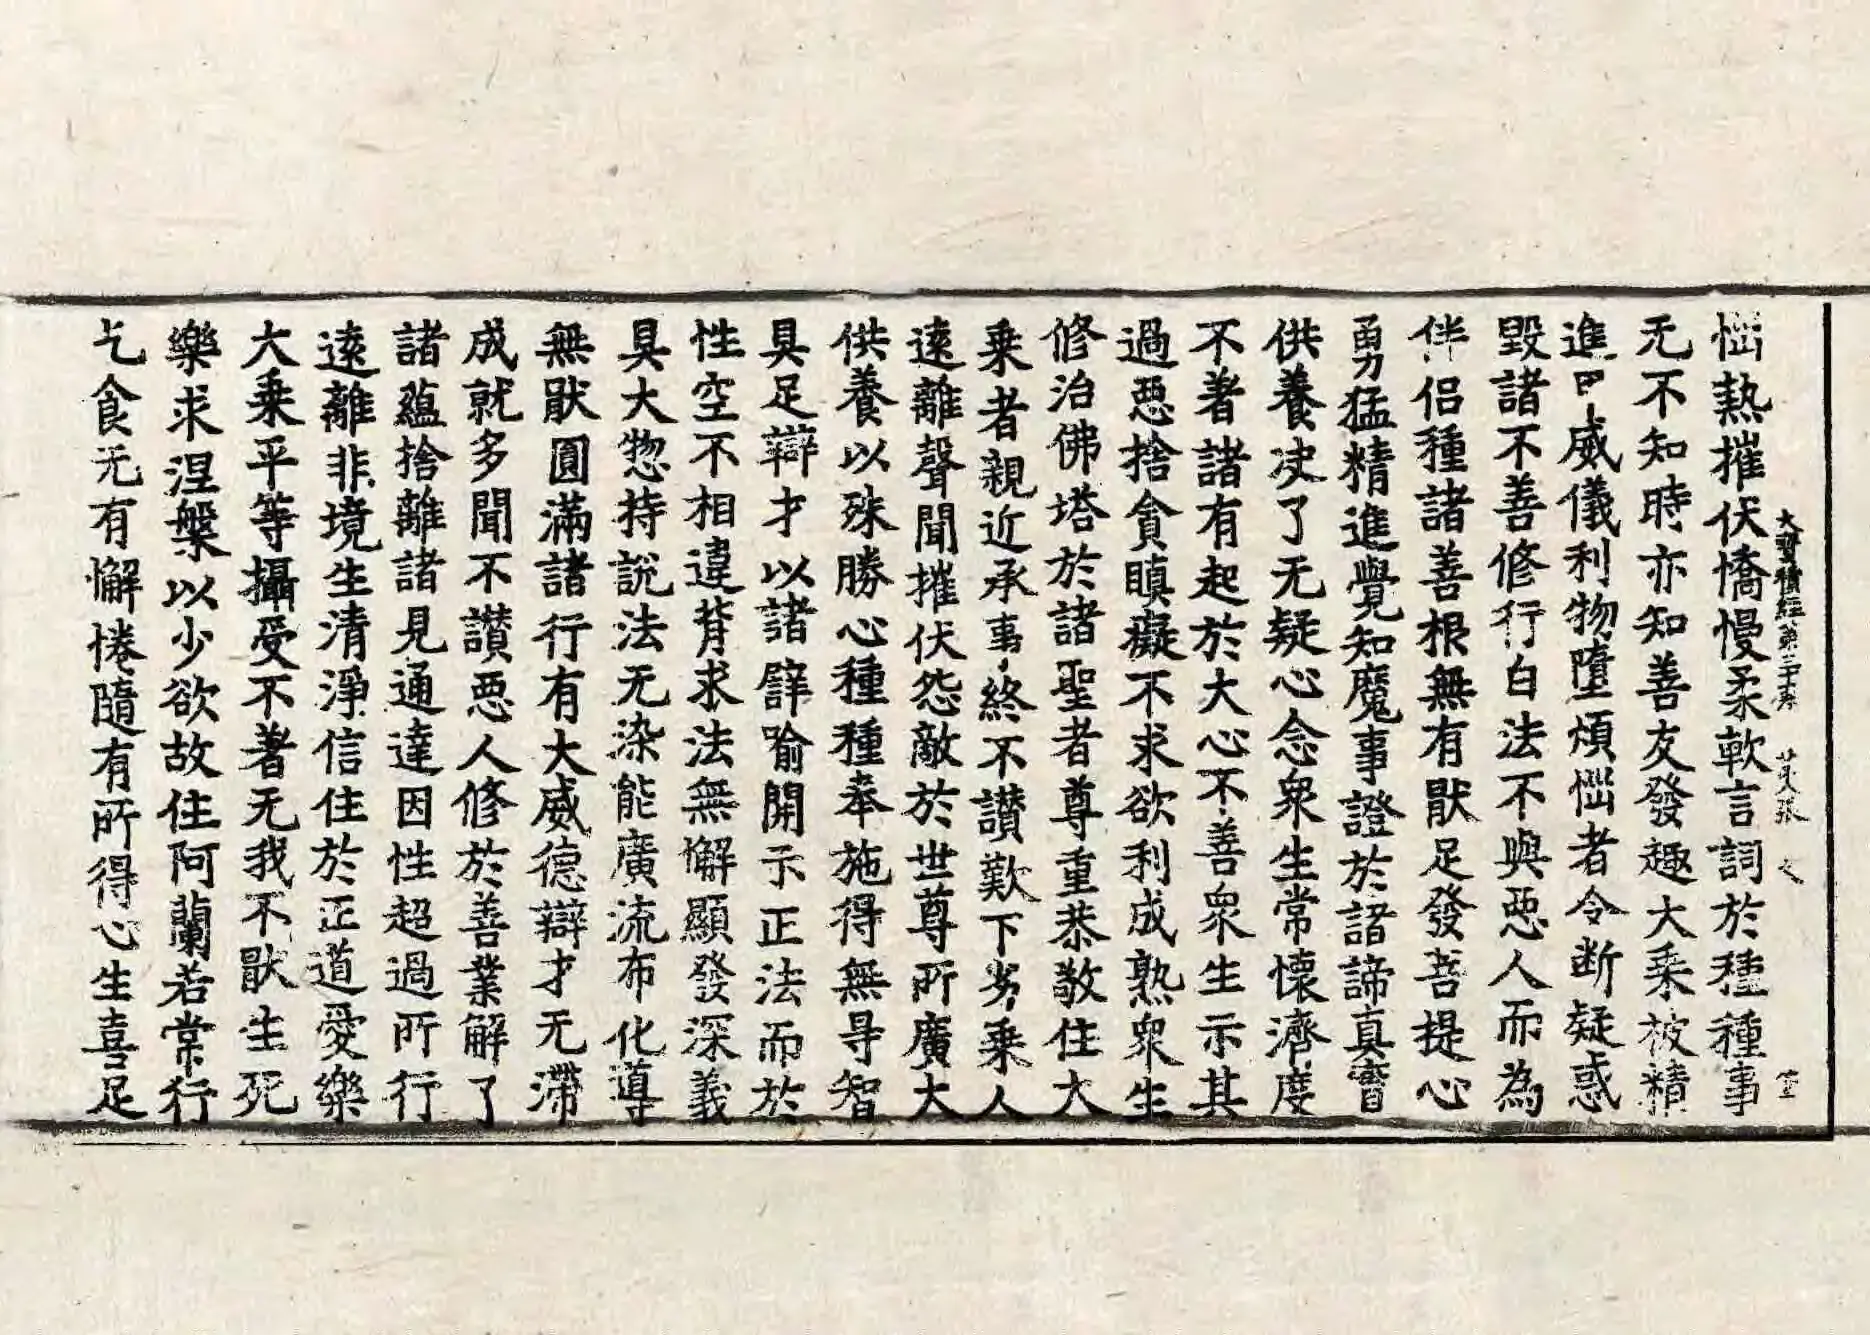 大寶積經第二十卷 廿八張 之
惱熱摧伏憍慢柔軟言詞於種種事
无不知時亦知善友發趣大乘被精
進甲威儀利物墮煩惱者令断疑惑
毀諸不善修行白法不與惡人而為
伴侣種諸善根無有猒足發菩提心
勇猛精進覺知魔事證於諸諦真實
供養决了无疑心念衆生常懷濟度
不著諸有起於大心不善衆生示其
過惡捨貪瞋癡不求欲利成熟衆生
修治佛塔於諸聖者尊重恭敬住大
乘者親近承事終不讃歎下劣乘人
遠離聲聞摧伏怨敵於世尊所廣大
供養以殊勝心種種奉施得無㝵智
具足辯才以諸譬喻開示正法而於
性空不相違背求法無懈顯發深義
具大惣持說法无染能廣流布化導
無猒圓滿諸行有大威德辯才无滯
成就多聞不讃惡人修於善業解了
諸蘊捨離諸見通達因性超過所行
遠離非境生清淨信住於正道愛樂
大乘平等攝受不著无我不猒生死
樂求涅槃以少欲故住阿蘭若常行
乞食无有懈惓隨有所得心生喜足